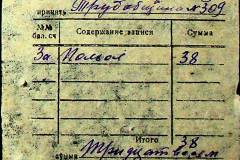 принять Трудовщина № 309
№№ бал. сч Содержание записи Сумма
За Помол 38
Итого 38
сумма Тридцать восем